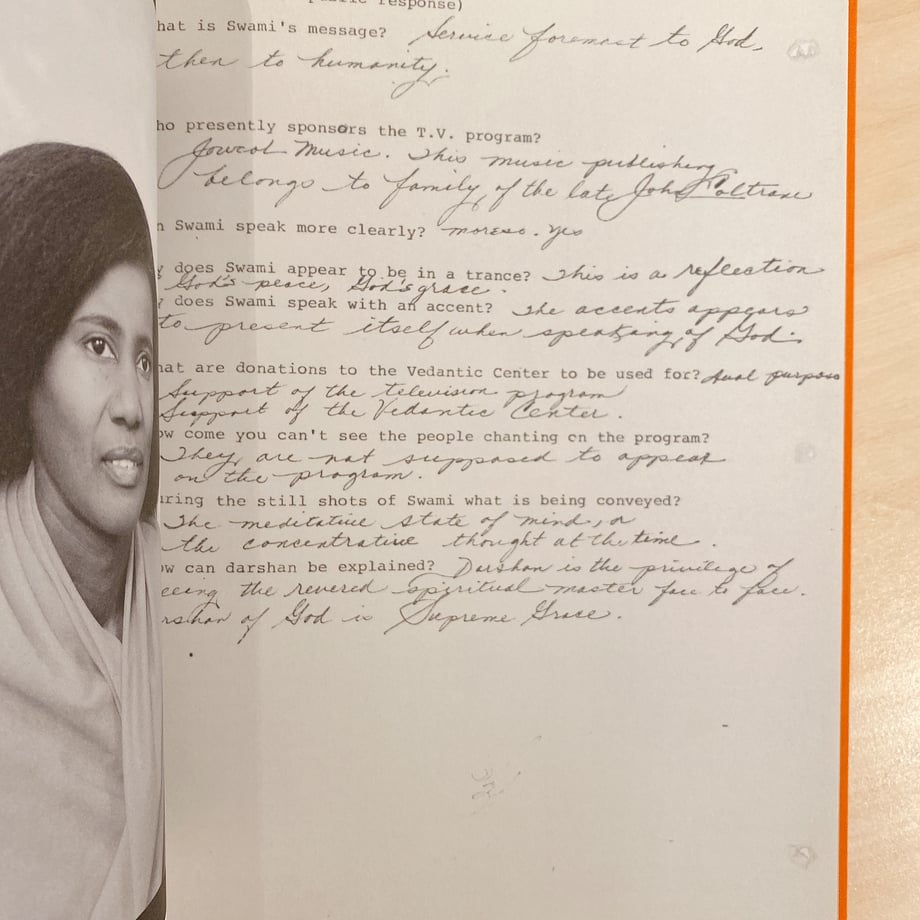 response)
hat is Swami's message? Service foremost to God,
then to humanity.
ho presently sponsors the T.V. program?
Jowcol Music. This music publishing
belongs to family, of the late John Coltrane
n Swami speak more clearly? moreso. yes
y does Swami appear to be in a trance? This is a reflection
God's peace, God's grace.
? does Swami speak with an accent? The accents appears
to present itself when speaking, of God.
hat are donations to the Vedantic Center to be used for? dual purpose
Support of the television program
Support of the Vedantic Center.
ow come you can't see the people chanting on the program?
They are not supposed to appear
on the program.
uring the still shots of Swami what is being conveyed?
The meditative state of mind, or
the concentrative thought at the time.
ow can darshan be explained? Darshan is the privilege of
eeing the revered spiritual master face to face.
rshan of God is Supreme Grace.